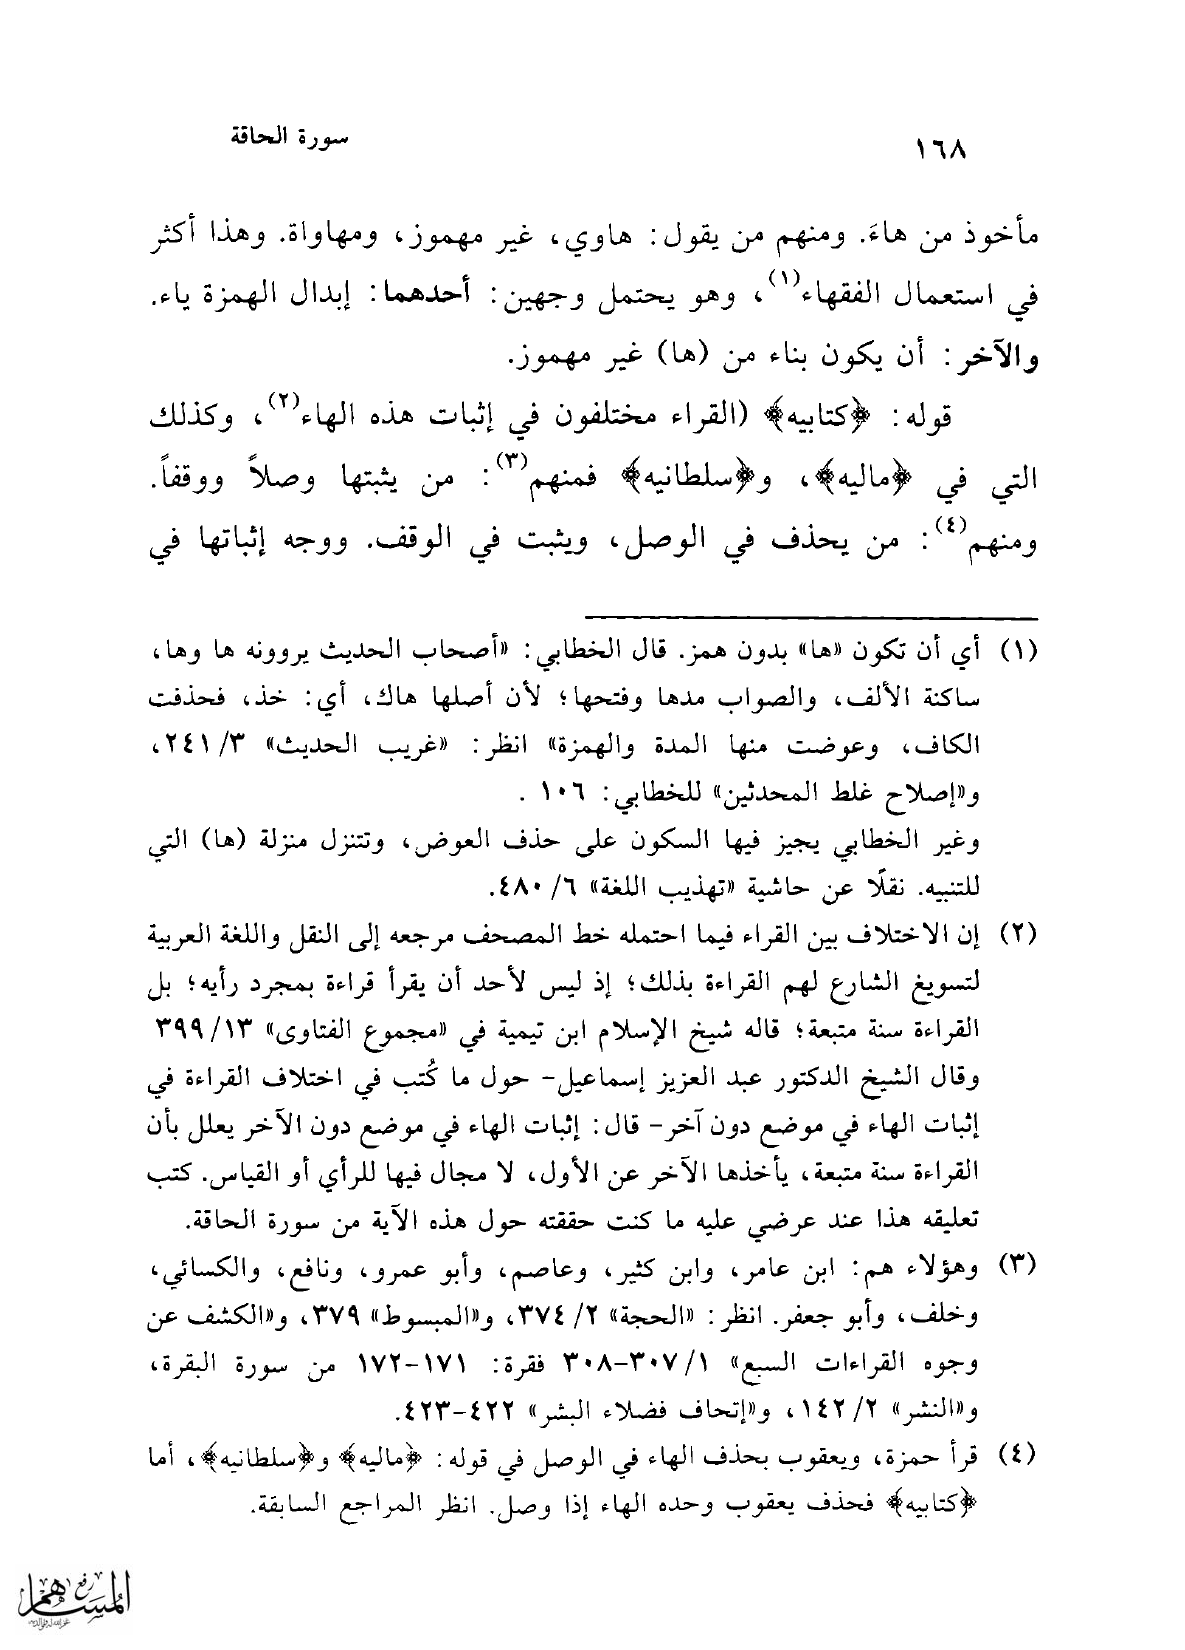 ١٦٨ سورة الحاقة
مأخوذ من هاءَ. ومنهم من يقول: هاوي، غير مهموز، ومهاواة. وهذا أكثر
في استعمال الفقهاء(١)، وهو يحتمل وجهين: أحدهما: إبدال الهمزة ياء.
والآخر: أن يكون بناء من (ها) غير مهموز.
قوله: ﴿كتابيه﴾ (القراء مختلفون في إثبات هذه الهاء(٢)، وكذلك
التي في ﴿ماليه﴾، و﴿سلطانيه﴾ فمنهم(٣): من يثبتها وصلاً ووقفاً.
ومنهم(٤): من يحذف في الوصل، ويثبت في الوقف. ووجه إثباتها في
(١) أي أن تكون «ها» بدون همز. قال الخطابي: «أصحاب الحديث يروونه ها وها،
ساكنة الألف، والصواب مدها وفتحها؛ لأن أصلها هاك، أي: خذ، فحذفت
الكاف، وعوضت منها المدة والهمزة» انظر: «غريب الحديث» ٣/ ٢٤١،
و«إصلاح غلط المحدثين» للخطابي: ١٠٦ .
وغير الخطابي يجيز فيها السكون على حذف العوض، وتتنزل منزلة (ها) التي
للتنبيه. نقلًا عن حاشية «تهذيب اللغة» ٦/ ٤٨٠.
(٢) إن الاختلاف بين القراء فيما احتمله خط المصحف مرجعه إلى النقل واللغة العربية
لتسويغ الشارع لهم القراءة بذلك؛ إذ ليس لأحد أن يقرأ قراءة بمجرد رأيه؛ بل
القراءة سنة متبعة؛ قاله شيخ الإسلام ابن تيمية في «مجموع الفتاوى» ١٣/ ٣٩٩
وقال الشيخ الدكتور عبد العزيز إسماعيل- حول ما كُتب في اختلاف القراءة في
إثبات الهاء في موضع دون آخر- قال: إثبات الهاء في موضع دون الآخر يعلل بأن
القراءة سنة متبعة، يأخذها الآخر عن الأول، لا مجال فيها للرأي أو القياس. كتب
تعليقه هذا عند عرضي عليه ما كنت حققته حول هذه الآية من سورة الحاقة.
(٣) وهؤلاء هم: ابن عامر، وابن كثير، وعاصم، وأبو عمرو، ونافع، والكسائي،
وخلف، وأبو جعفر. انظر: «الحجة» ٢/ ٣٧٤، و«المبسوط» ٣٧٩، و«الكشف عن
وجوه القراءات السبع» ١/ ٣٠٧-٣٠٨ فقرة: ١٧١-١٧٢ من سورة البقرة،
و«النشر» ٢/ ١٤٢، و«إتحاف فضلاء البشر» ٤٢٢-٤٢٣.
(٤) قرأ حمزة، ويعقوب بحذف الهاء في الوصل في قوله: ﴿ماليه﴾ و﴿سلطانيه﴾، أما
﴿كتابيه﴾ فحذف يعقوب وحده الهاء إذا وصل. انظر المراجع السابقة.